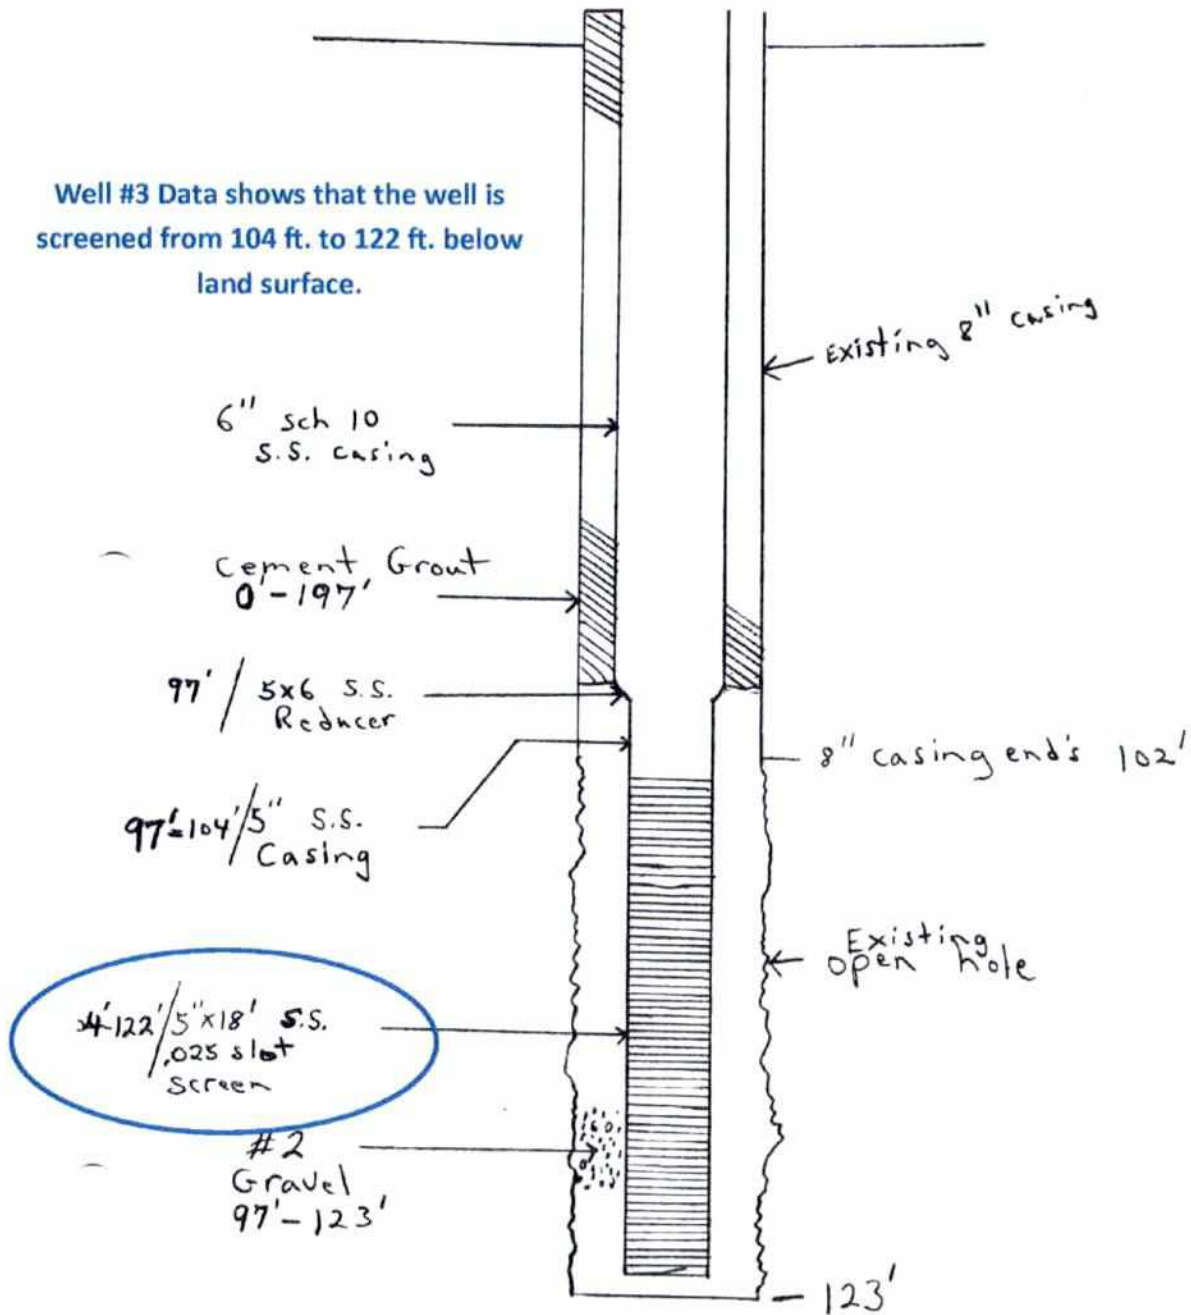 Well #3 Data shows that the well is
screened from 104 ft. to 122 ft. below
land surface.
Existing 8" casing
6" sch 10
S.S. casing
Cement Grout
0'-197'
97' / 5x6 S.S.
Reducer
8" casing end's 102'
97'-104'/5" S.S.
Casing
Existing
open hole
4'122'/5"x18' S.S.
.025 slot
screen
#2
Gravel
97'-123'
123'